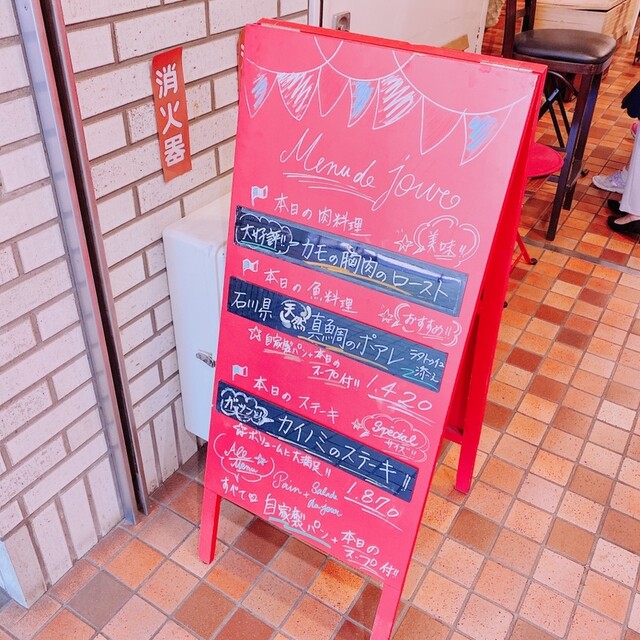 消火器
Menu de jour
本日の肉料理
美味!!
大好評!! カモの胸肉のロースト
本日の魚料理
おすすめ!!
石川県 天然 真鯛のポアレ ラタトゥイユ添え
自家製パン+本日のスープ付!! 1.420
本日のステーキ
Specialサイズ!!
カイノミのステーキ!!
ボリューム に大満足!! 1.870
All Menu Pain + Salade du jour
すべてに自家製パン+本日のスープ付!!